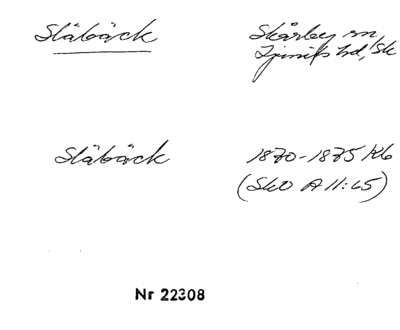 Släbäck
Skårby sn,
Ljunits hd, Sk
Släbäck
1870-1875 Kb
(SkO A II:65)
Nr 22308